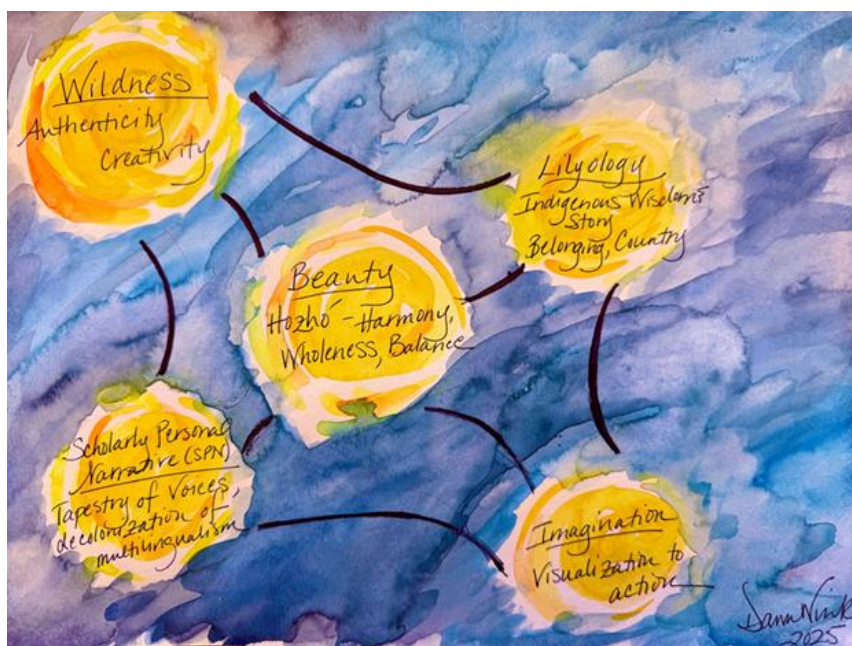 Wildness
Authenticity
Creativity
Lilyology
Indigenous Wisdoms
Story
Belonging, Country
Beauty
Hozhó - Harmony,
Wholeness, Balance
Scholarly Personal
Narrative (SPN)
Tapestry of Voices,
decolonization of
multilingualism
Imagination
Visualization to
action
2025